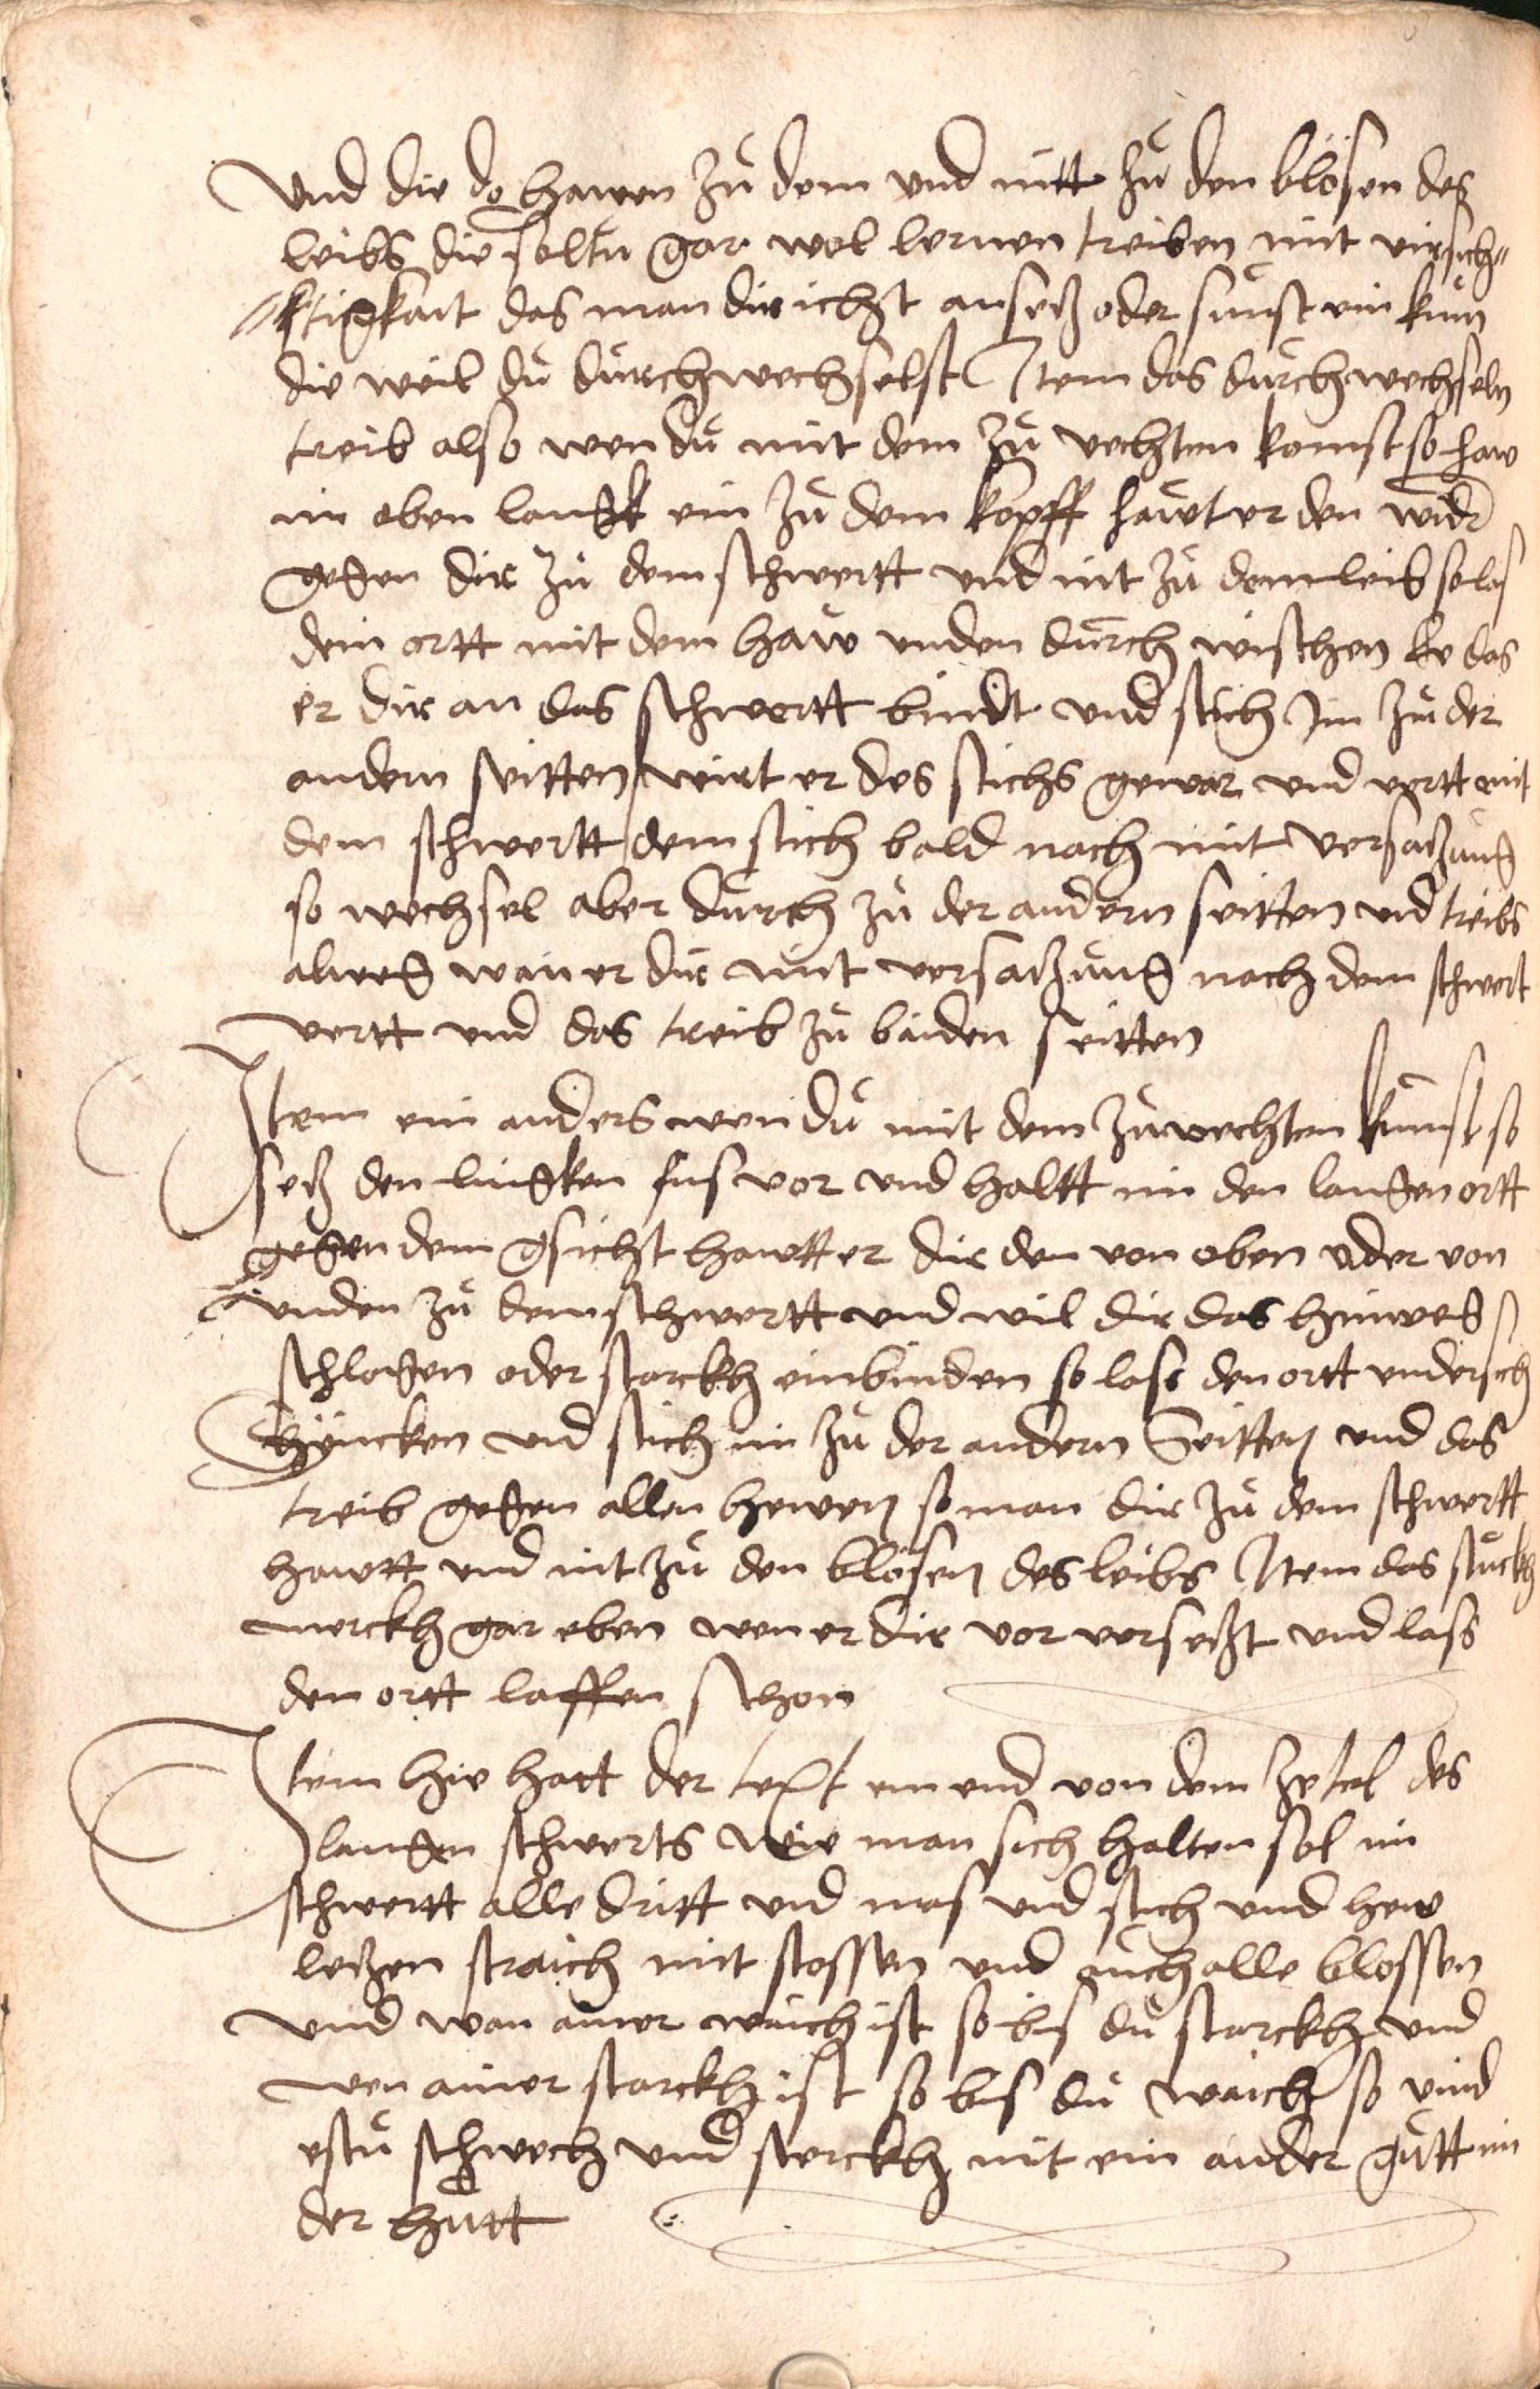 Vnd die do hawen zů dem vnd nitt zů den blösen des
leibs die soltu gar wol lernen treiben mit virsich„
„ktigkait das man dir ichzt ansetz oder sůnst ein kům
die weil dů důrchwechselst Item das důrchwechseln
treib also wen dů mit dem zů vechten komst so haw
im oben langk ein zů dem kopff hawt er den widr
gegen dir zů dem schwertt vnd nit zů dem leib so las
dein ortt mit dem haw vnden důrch wischen Ee das
er dir an das schwertt bindt vnd stich Im zů der
andern seitten wirt er des stichs gewar vnd vertt mit
dem schwertt dem stich bald nach mit versatzung
so wechsel aber důrch zů der andern seitten vnd treibs
alweg wan er dir mit versatzůng nach dem schwert
vertt vnd das treib zů baiden seitten
Item ein anders wen dů mit dem zůvechten kumst so
setz den lingken fus vor vnd haltt im den langen ortt
gegen dem gsicht hawtt er dir den von oben oder von
vnden zů dem schwertt vnd wil dir das hinweg
schlagen oder starckh einbinden so lass den ortt vndersich
syncken vnd stich im zů der andern Seitten vnd das
treib gegen allen hewen so man dir zů dem schwertt
hawtt vnd nit zů den blösen des leibs Item das stůckh
merckh gar eben wen er dir vor versetzt vnd lass
den ortt laffen schon
Item hie hatt der text ein end von dem zetel des
langen schwerts wie man sich halten sol im
schwertt alle dritt vnd mas vnd stich vnd hew
letzen straich mit stossen vnd auch alle blossen
vnd wan ainer waich ist so bis dů starckh vnd
wen ainer starckh ist so bis dů waich so vind
estů schwech vnd sterckh mit ein ander gůtt in
der hůtt